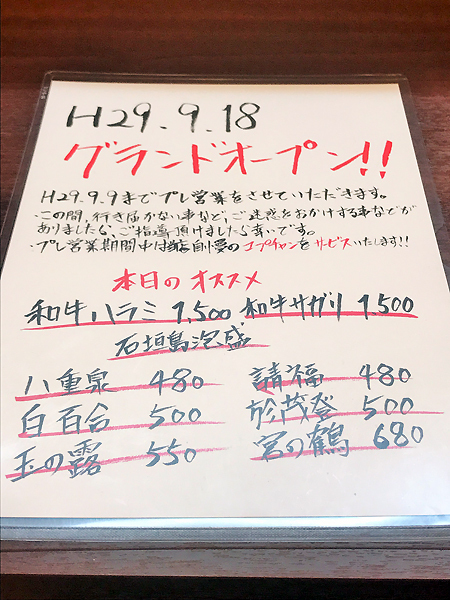 H29.9.18
グランドオープン!!
H29.9.9までプレ営業をさせていただきます。
・この間、行き届かない事など、ご迷惑をおかけする事などが
ありましたら、ご指導頂けましたら幸いです。
・プレ営業期間中は当店自慢のコプチャンをサービスいたします!!
本日のオススメ
和牛ハラミ 1,500 和牛サガリ 1,500
石垣島泡盛
八重泉 480 請福 480
白百合 500 於茂登 500
玉の露 550 宮の鶴 680